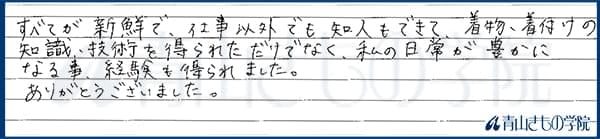 すべてが新鮮で、仕事以外でも知人もできて、着物、着付けの
知識、技術を得られただけでなく、私の日常が豊かに
なる事、経験も得られました。
ありがとうございました。
青山きもの学院